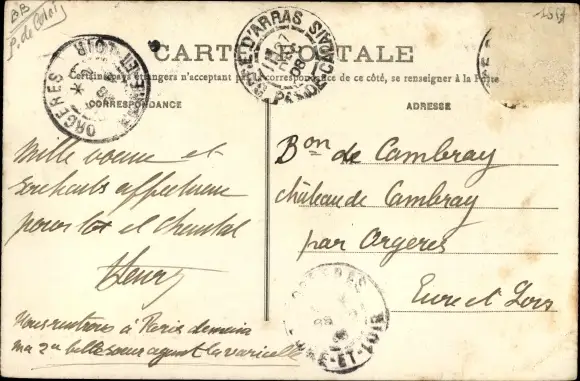 BB
P. de Cal.
CARTE POSTALE
Certains pays étrangers n'acceptant pas de correspondance de ce côté, se renseigner à la Poste
CORRESPONDANCE
ADRESSE
GARE D'ARRAS PAS DE CALAIS
08
ORGERES EURE-ET-LOIR
Mille bonne et
souhaits affectueux
pour toi et Chantal
Henry
Nous rentrons à Paris demain
ma 2e belle soeur ayant la varicelle
Bon de Cambray
château de Cambray
par Orgeres
Eure et Loir
ORGERES EURE-ET-LOIR